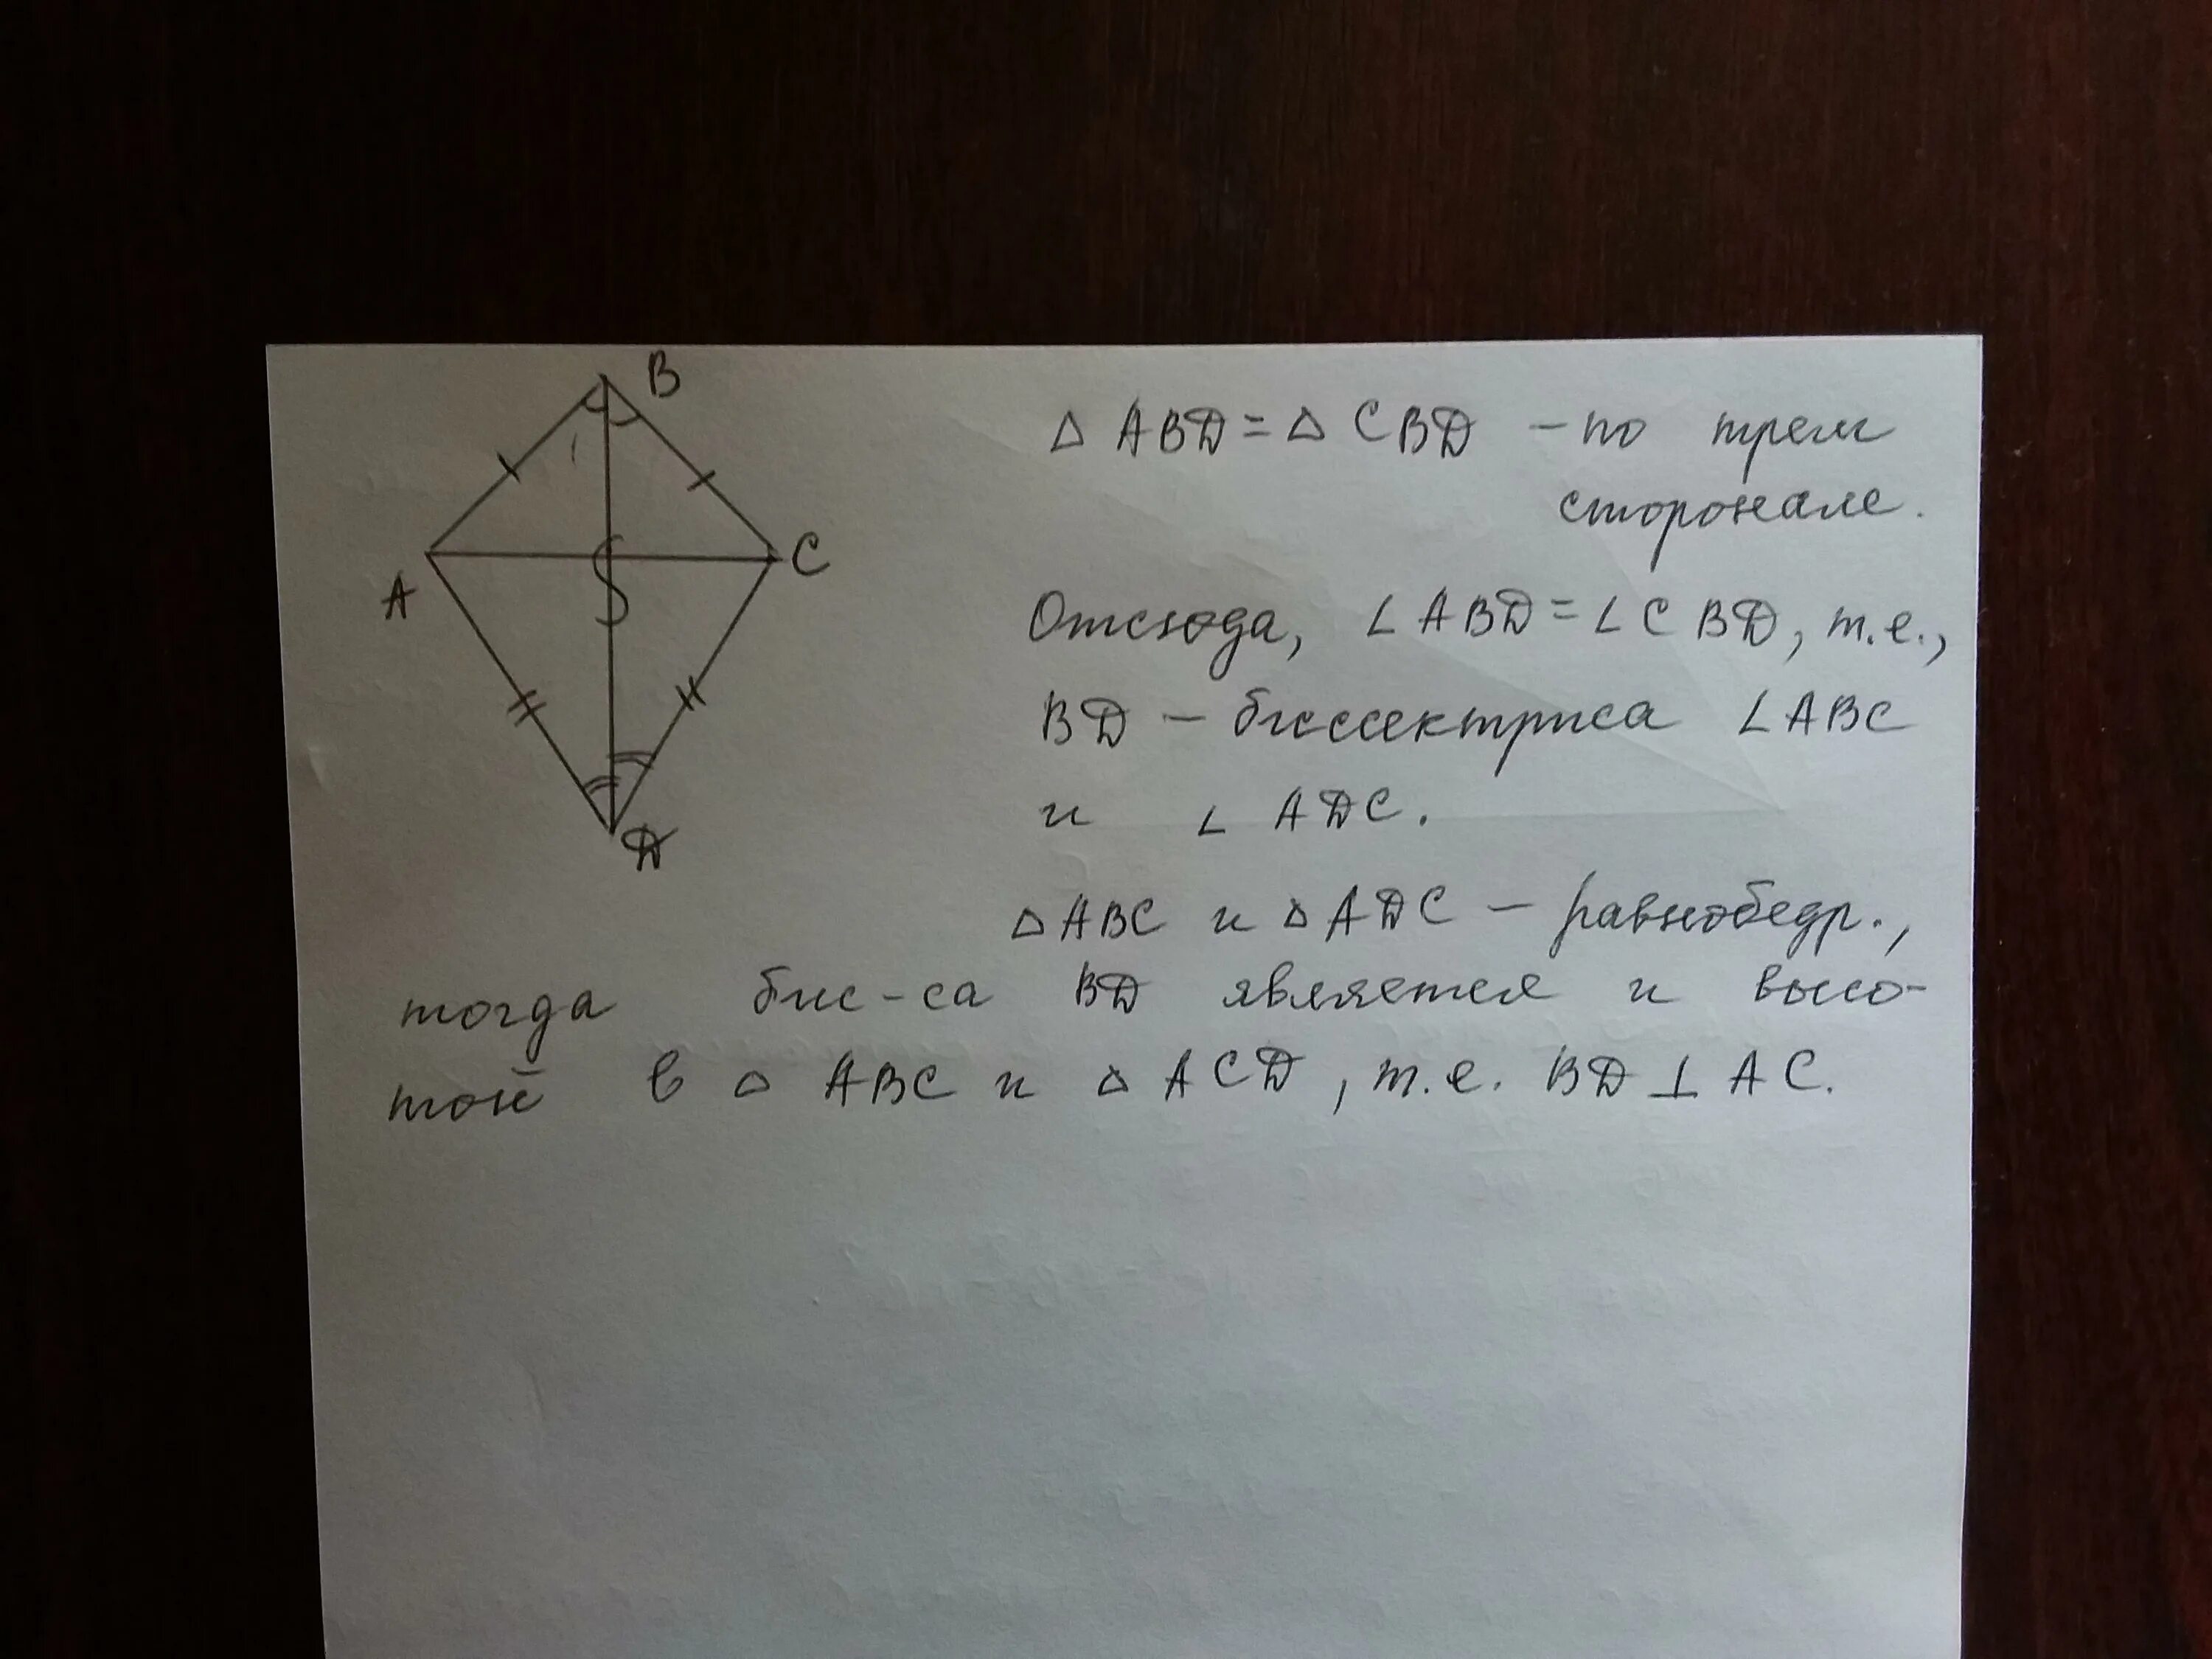 B
A
C
D
△ ABD = △ CBD – по трем
сторонам.
Отсюда, ∠ ABD = ∠ CBD, т.е.,
BD – биссектриса ∠ABC
и ∠ ADC.
△ABC и △ADC – равнобедр.,
тогда бис-са BD является и высо-
той в △ ABC и △ ACD, т.е. BD ⊥ AC.